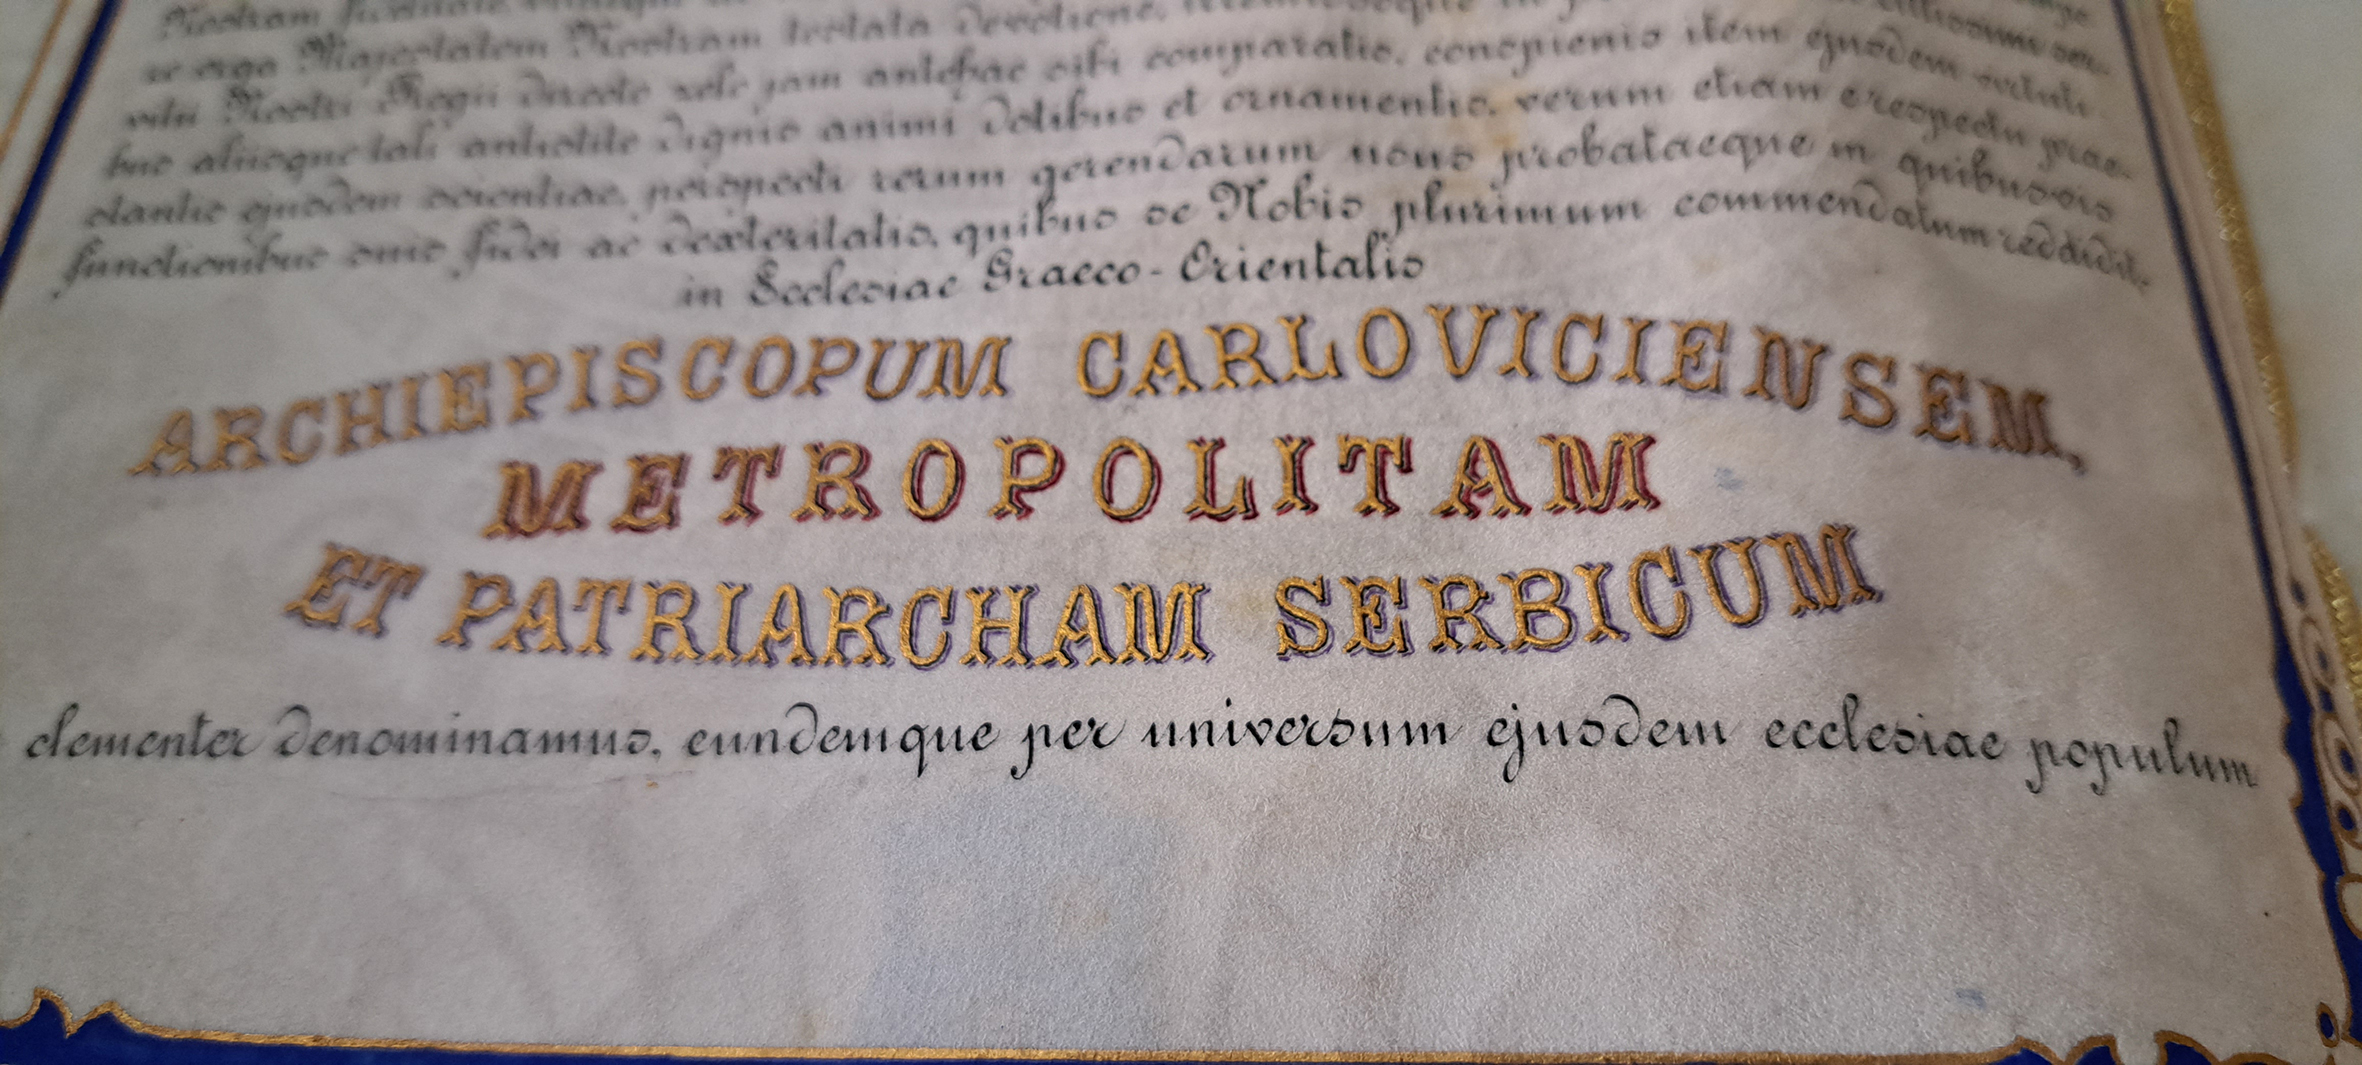 Nostram
ac erga Majestatem Nostram testata devotione,
vitii Nostri Regii directo zelo jam antehac sibi comparatis, concipiento item ejusdem virtuti
bus aliisque tali antistite dignis animi dotibus et ornamentis, verum etiam e respectu prae-
stantis ejusdem scientiae, perspecti rerum gerendarum usus probataeque in quibusvis
functionibus suis fidei ac dexteritatis, quibus se Nobis plurimum commendatum reddidit,
in Ecclesiae Graeco-Orientalis
ARCHIEPISCOPUM CARLOVICIENSEM,
METROPOLITAM
ET PATRIARCHAM SERBICUM
clementer denominamus, eundemque per universum ejusdem ecclesiae populum